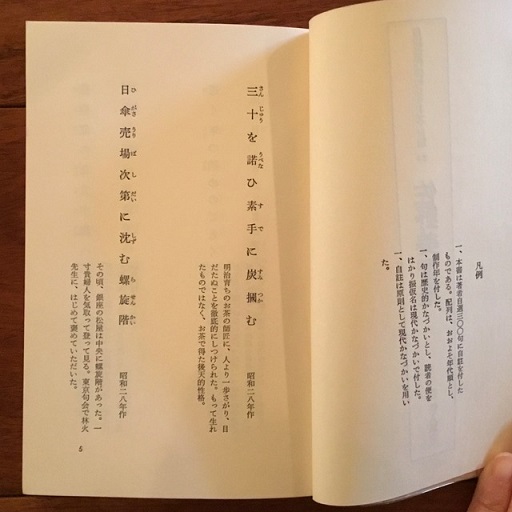 凡例
一、本書は著者自選三〇〇句に自註を付した
ものである。配列は、おおよそ年代順とし、
製作年を付した。
一、句は歴史的かなづかいとし、読者の便を
はかり振仮名は現代かなづかいで付した。
一、自註は原則として現代かなづかいを用い
た。
三十を諾ひ素手に炭摑む
さん じゅう うべな す で すみ つか
昭和二八年作
明治育ちのお茶の師匠に、人より一歩さがり、目
だたぬことを徹底的にしつけられた。もって生れ
たものではなく、お茶で得た後天的性格。
日傘売場次第に沈む螺旋階
ひ がさ うり ば し だい しず ら せん かい
昭和二八年作
その頃、銀座の松屋は中央に螺旋階があった。一
寸貴婦人を気取って登って見る。東京句会で林火
先生に、はじめて褒めていただいた。
5